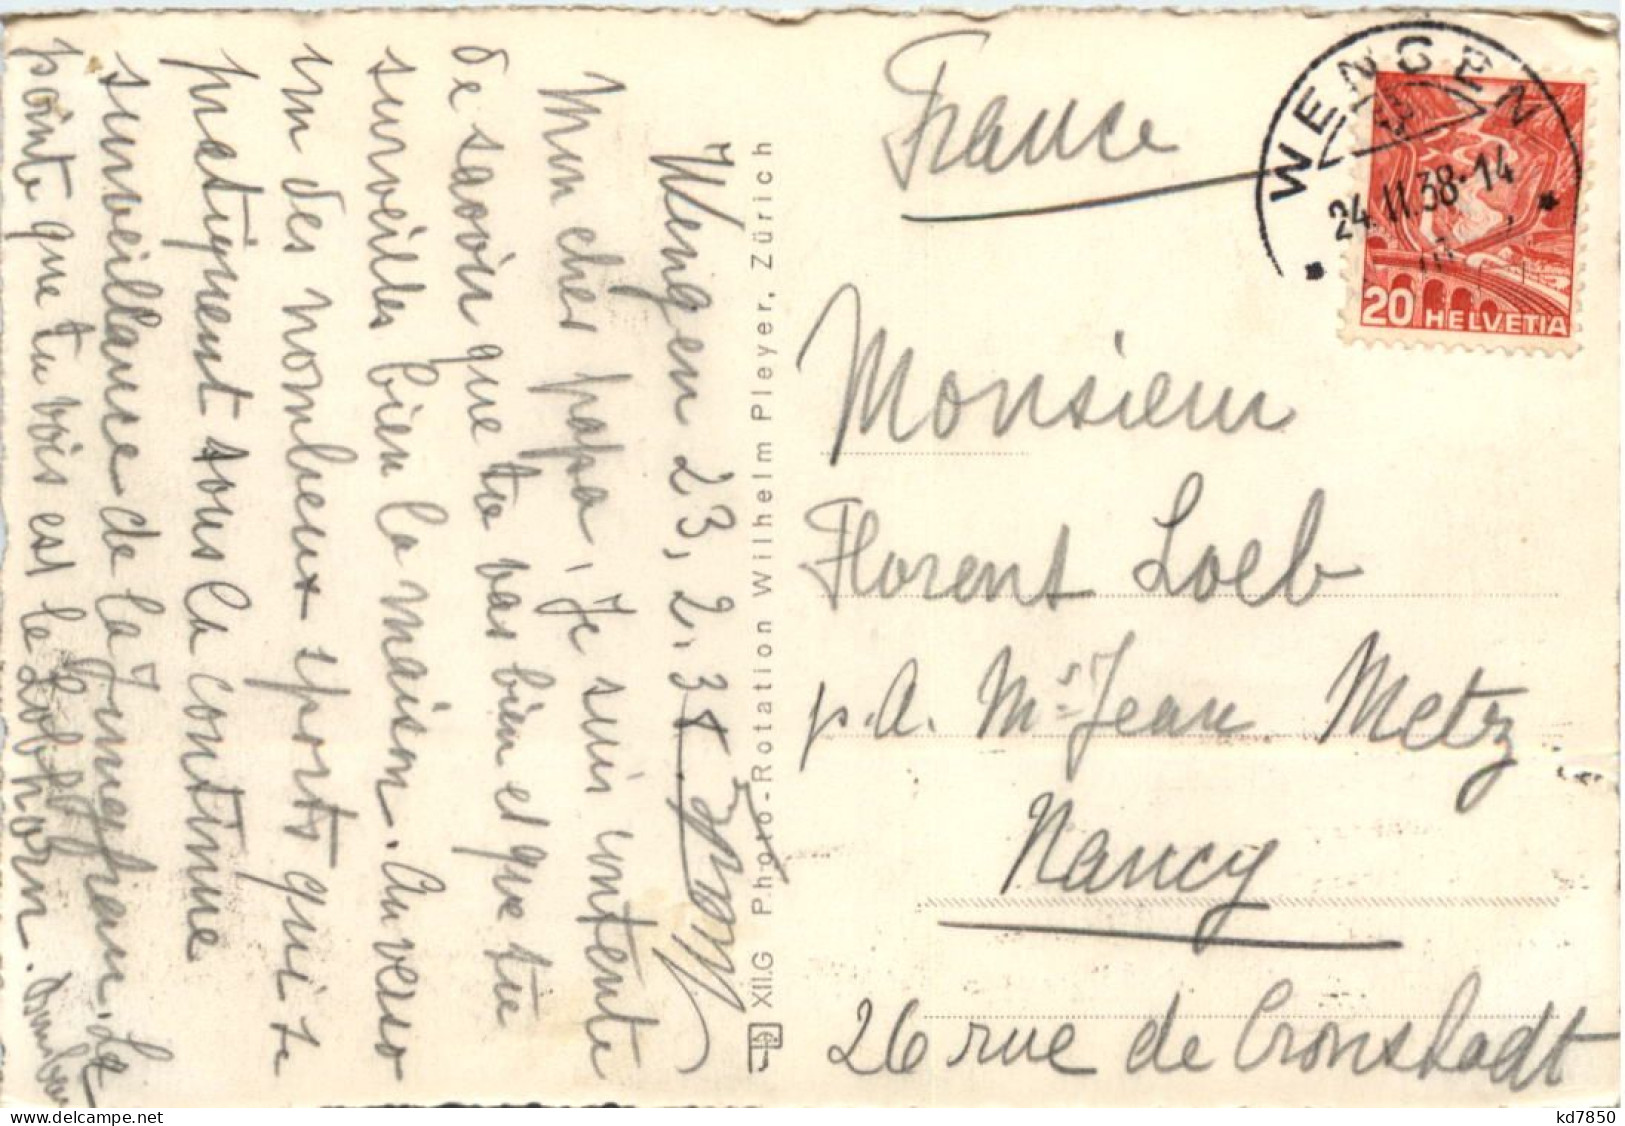 Wengen 23, 2. 38.
Mon cher papa, Je suis contente
de savoir que tu vas bien et que tu
surveilles bien la maison. Au verso
un des nombeux sports qui se
pratiquent sous la continue
surveillance de la Jungfrau. La
pointe que tu vois est le Lobhorn.
XII.G Photo-Rotation Wilhelm Pleyer, Zürich
France
WENGEN
24.II.38-14
20 HELVETIA
Monsieur
Florent Loeb
p.a. Mr Jean Metz
Nancy
26 rue de Cronstadt
kd7850